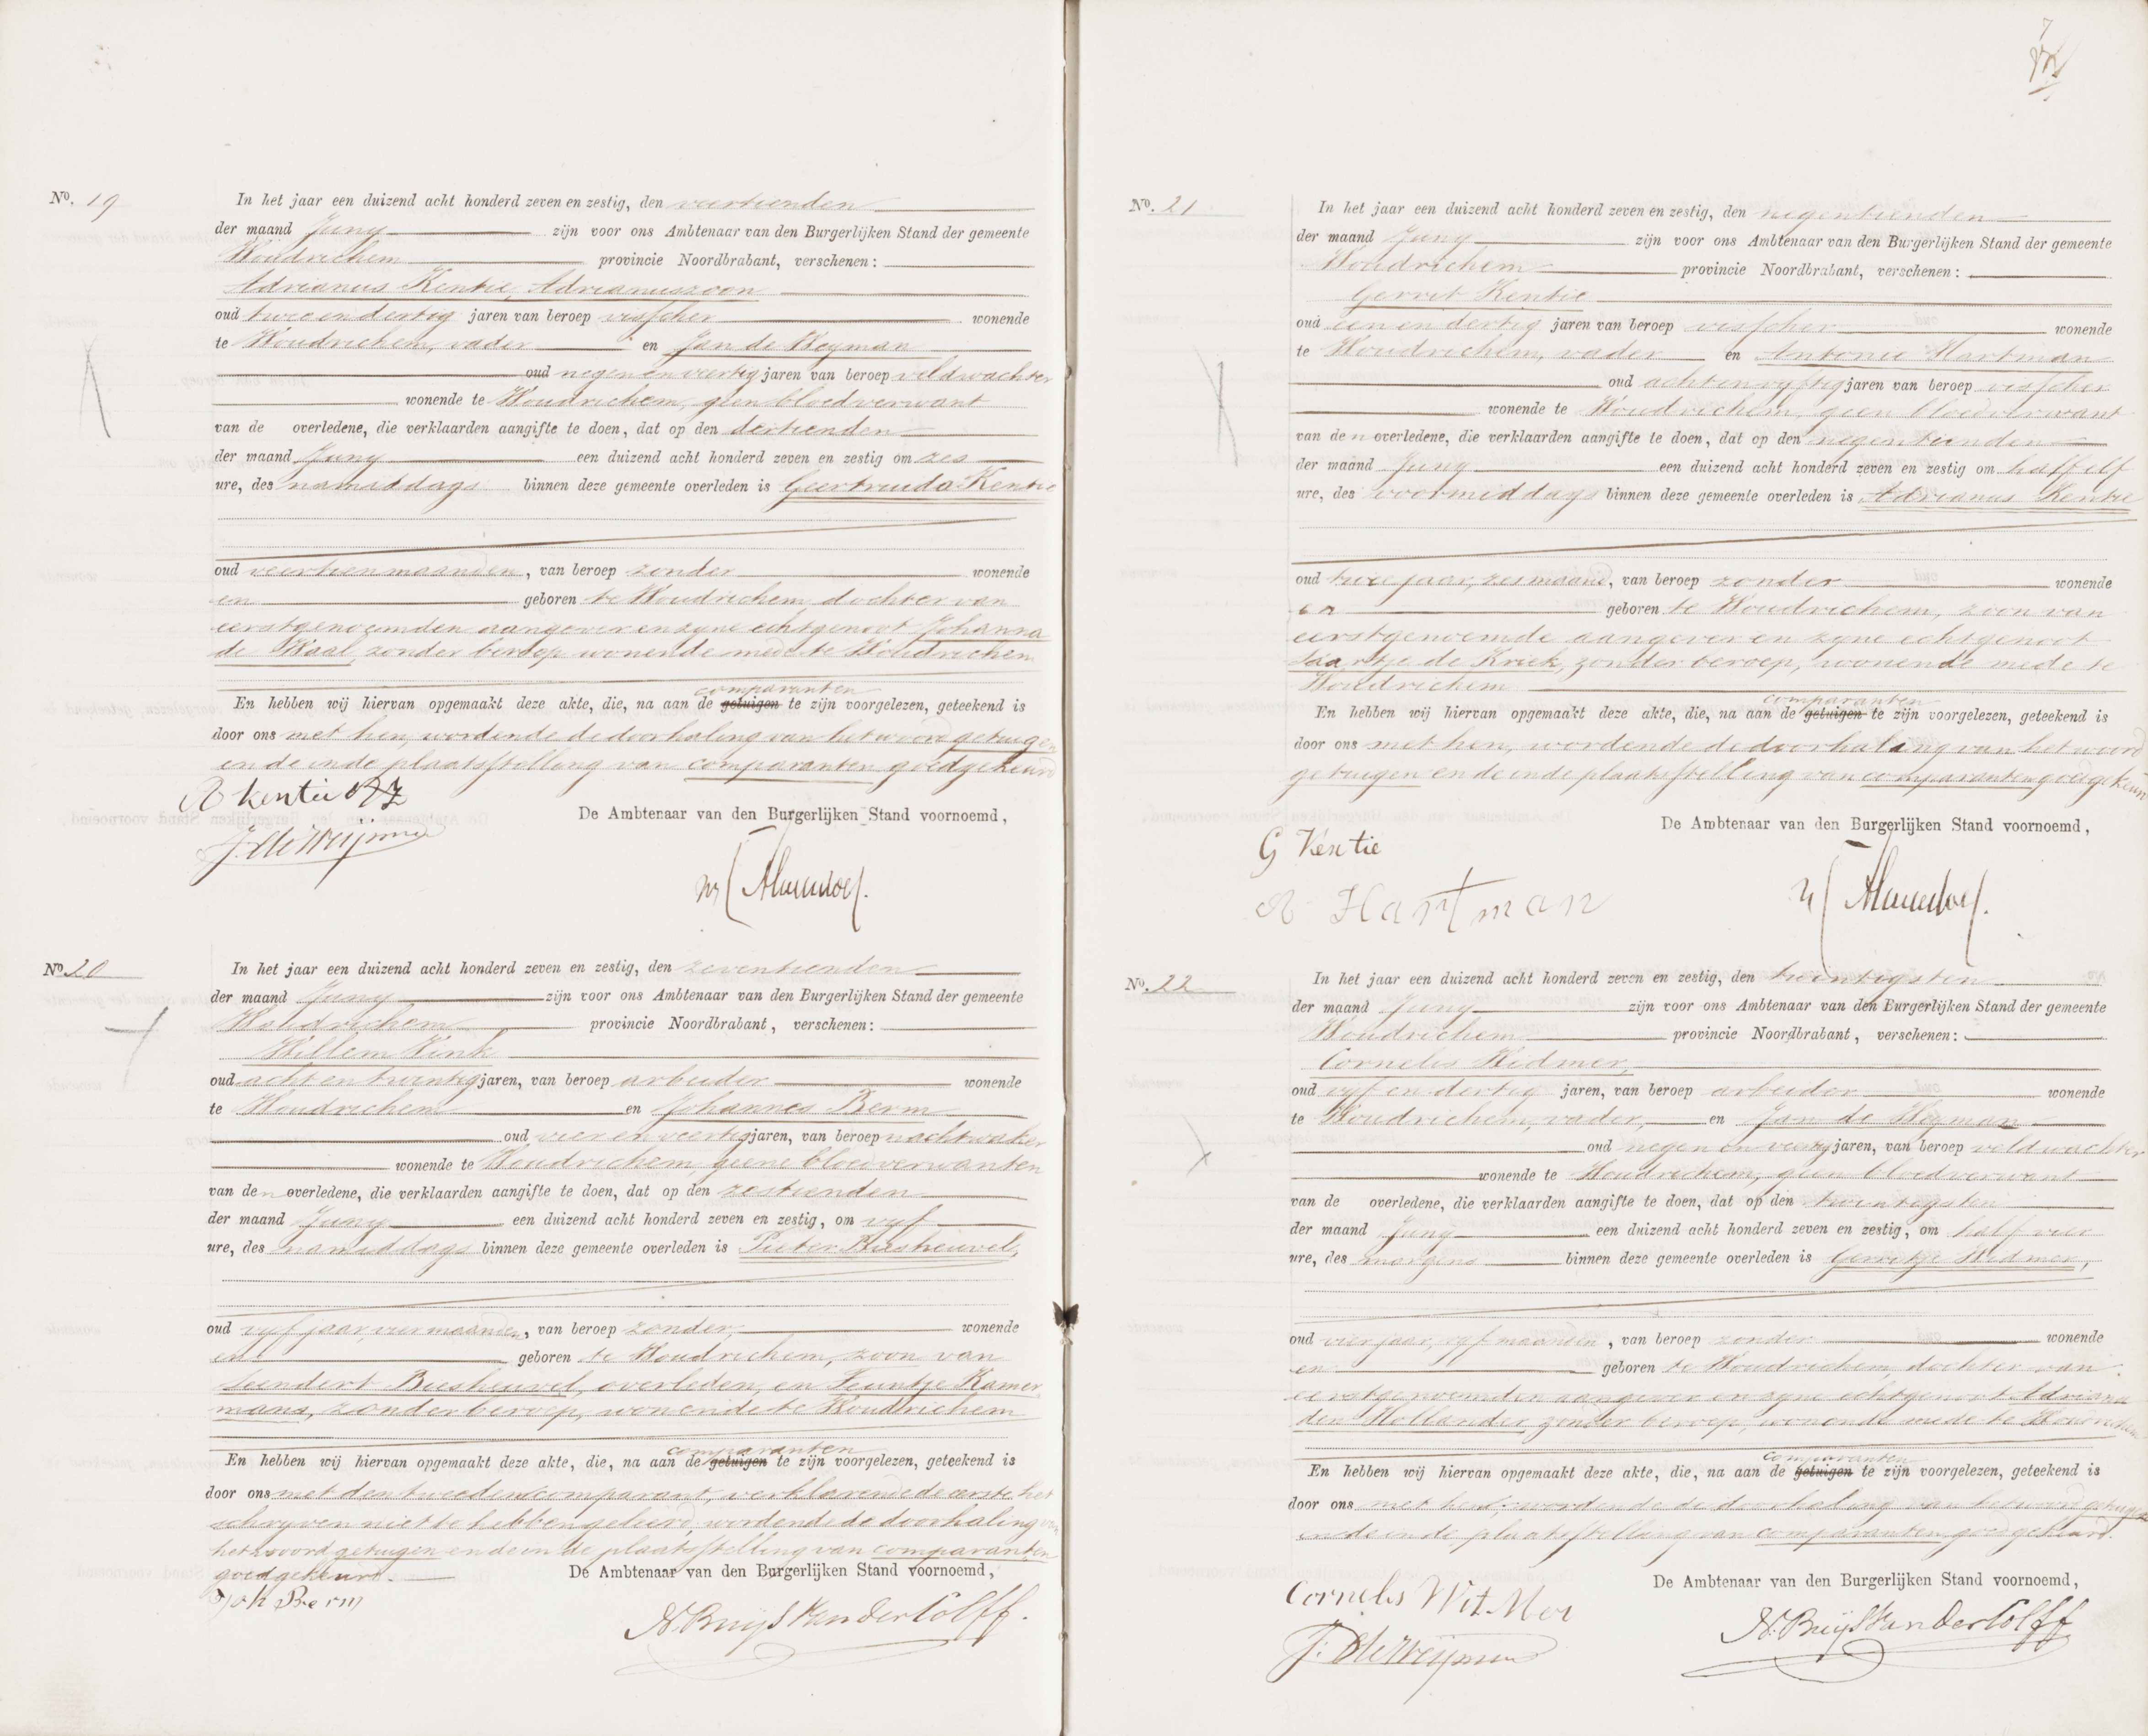 No. 19
In het jaar een duizend acht honderd zeven en zestig, den veertienden
der maand Juny zijn voor ons Ambtenaar van den Burgerlijken Stand der gemeente
Woudrichem provincie Noordbrabant, verschenen:
Adrianus Kentie, Adrianuszoon
oud twee en dertig jaren van beroep visscher wonende
te Woudrichem, vader en Jan de Weyman
oud negen en veertig jaren van beroep veldwachter
wonende te Woudrichem, geen bloedverwant
van de overledene, die verklaarden aangifte te doen, dat op den dertienden
der maand Juny een duizend acht honderd zeven en zestig om zes
ure, des namiddags binnen deze gemeente overleden is Geertruida Kentie
oud veertien maanden, van beroep zonder wonende
en geboren te Woudrichem, dochter van
eerstgenoemden aangever en zyne echtgenoot Johanna
de Waal, zonder beroep wonende mede te Woudrichem
comparanten
En hebben wij hiervan opgemaakt deze akte, die, na aan de getuigen te zijn voorgelezen, geteekend is
door ons met hen, wordende de doorhaling van het woord getuigen
en de inde plaatsstelling van comparanten goedgekeurd
A Kentie AZ
De Ambtenaar van den Burgerlijken Stand voornoemd,
J. de Weijman
No. 20
In het jaar een duizend acht honderd zeven en zestig, den zeventienden
der maand Juny zijn voor ons Ambtenaar van den Burgerlijken Stand der gemeente
Woudrichem provincie Noordbrabant, verschenen:
Willem Vink
oud acht en twintig jaren, van beroep arbeider wonende
te Woudrichem en Johannes Berm
oud vier en veertig jaren, van beroep nachtwaker
wonende te Woudrichem, geene bloedverwanten
van den overledene, die verklaarden aangifte te doen, dat op den zestienden
der maand Juny een duizend acht honderd zeven en zestig, om vyf
ure, des namiddags binnen deze gemeente overleden is Pieter Biesheuvel,
oud vyf jaar vier maanden, van beroep zonder, wonende
en geboren te Woudrichem, zoon van
Leendert Biesheuvel, overleden, en Teuntje Kamer
mans, zonder beroep, wonende te Woudrichem
comparanten
En hebben wij hiervan opgemaakt deze akte, die, na aan de getuigen te zijn voorgelezen, geteekend is
door ons met den tweeden comparant, verklarende de eerste het
schryven niet te hebben geleerd, wordende de doorhaling van
het woord getuigen en de in de plaatsstelling van comparanten
goedgekeurd.
De Ambtenaar van den Burgerlijken Stand voornoemd,
Joh Berm
N. Buijs van der Colff.
No. 21
In het jaar een duizend acht honderd zeven en zestig, den negentienden
der maand Juny zijn voor ons Ambtenaar van den Burgerlijken Stand der gemeente
Woudrichem provincie Noordbrabant, verschenen:
Gerrit Kentie
oud een en dertig jaren van beroep visscher wonende
te Woudrichem, vader en Antonie Hartman
oud acht en vyftig jaren van beroep visscher
wonende te Woudrichem, geen bloedverwant
van den overledene, die verklaarden aangifte te doen, dat op den negentienden
der maand Juny een duizend acht honderd zeven en zestig om half elf
ure, des voormiddags binnen deze gemeente overleden is Adrianus Kentie
oud twee jaar, zes maand, van beroep zonder wonende
en geboren te Woudrichem, zoon van
eerstgenoemde aangever en zyne echtgenoot
Saartje de Kriek, zonder beroep, wonende mede te
Woudrichem
comparanten
En hebben wij hiervan opgemaakt deze akte, die, na aan de getuigen te zijn voorgelezen, geteekend is
door ons met hen, wordende de doorhaling van het woord
getuigen en de inde plaatsstelling van comparanten goedgekeurd
De Ambtenaar van den Burgerlijken Stand voornoemd,
G Kentie
A Hartman
No. 22
In het jaar een duizend acht honderd zeven en zestig, den twintigsten
der maand Juny zijn voor ons Ambtenaar van den Burgerlijken Stand der gemeente
Woudrichem provincie Noordbrabant, verschenen:
Cornelis Widmer,
oud vyf en dertig jaren, van beroep arbeider wonende
te Woudrichem, vader, en Jan de Weyman
oud negen en veertig jaren, van beroep veldwachter
wonende te Woudrichem, geen bloedverwant
van de overledene, die verklaarden aangifte te doen, dat op den twintigsten
der maand Juny een duizend acht honderd zeven en zestig, om half vier
ure, des morgens binnen deze gemeente overleden is Gerritje Widmer,
oud vier jaar, vyf maanden, van beroep zonder wonende
en geboren te Woudrichem, dochter van
eerstgenoemden aangever en zyne echtgenoot Adriana
den Hollander, zonder beroep, wonende mede te Woudrichem
comparanten
En hebben wij hiervan opgemaakt deze akte, die, na aan de getuigen te zijn voorgelezen, geteekend is
door ons met hen, wordende de doorhaling van het woord getuigen
en de in de plaatsstelling van comparanten goedgekeurd.
De Ambtenaar van den Burgerlijken Stand voornoemd,
Cornelis Wit.Mer
J: de Weijman
N. Buijs van der Colff